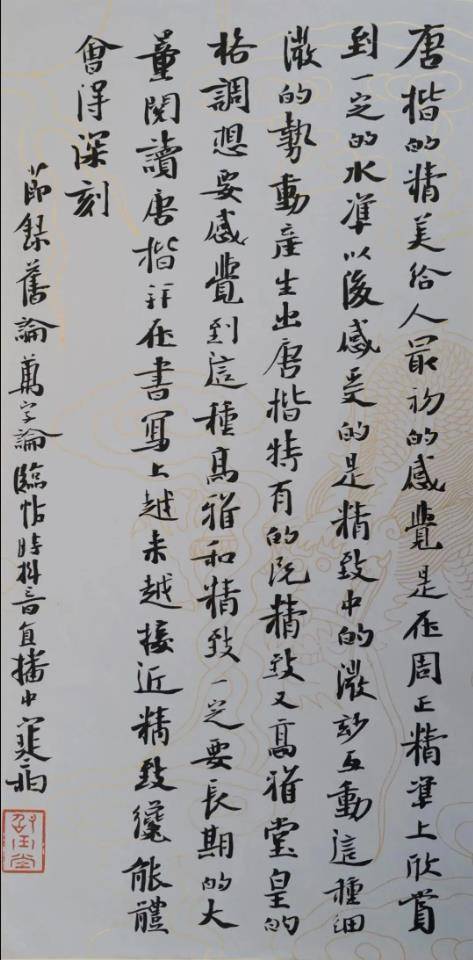 唐楷的精美給人最初的感覺是在周正精準上欣賞
到一定的水準以後感受的是精致中的微妙互動這種細
微的勢動產生出唐楷特有的既精致又高雅堂皇的
格調想要感覺到這種高雅和精致一定要長期的大
量閱讀唐楷并在書寫上越來越接近精致纔能體
會得深刻
節錄舊論萬字論臨帖時抖音直播中寒雨